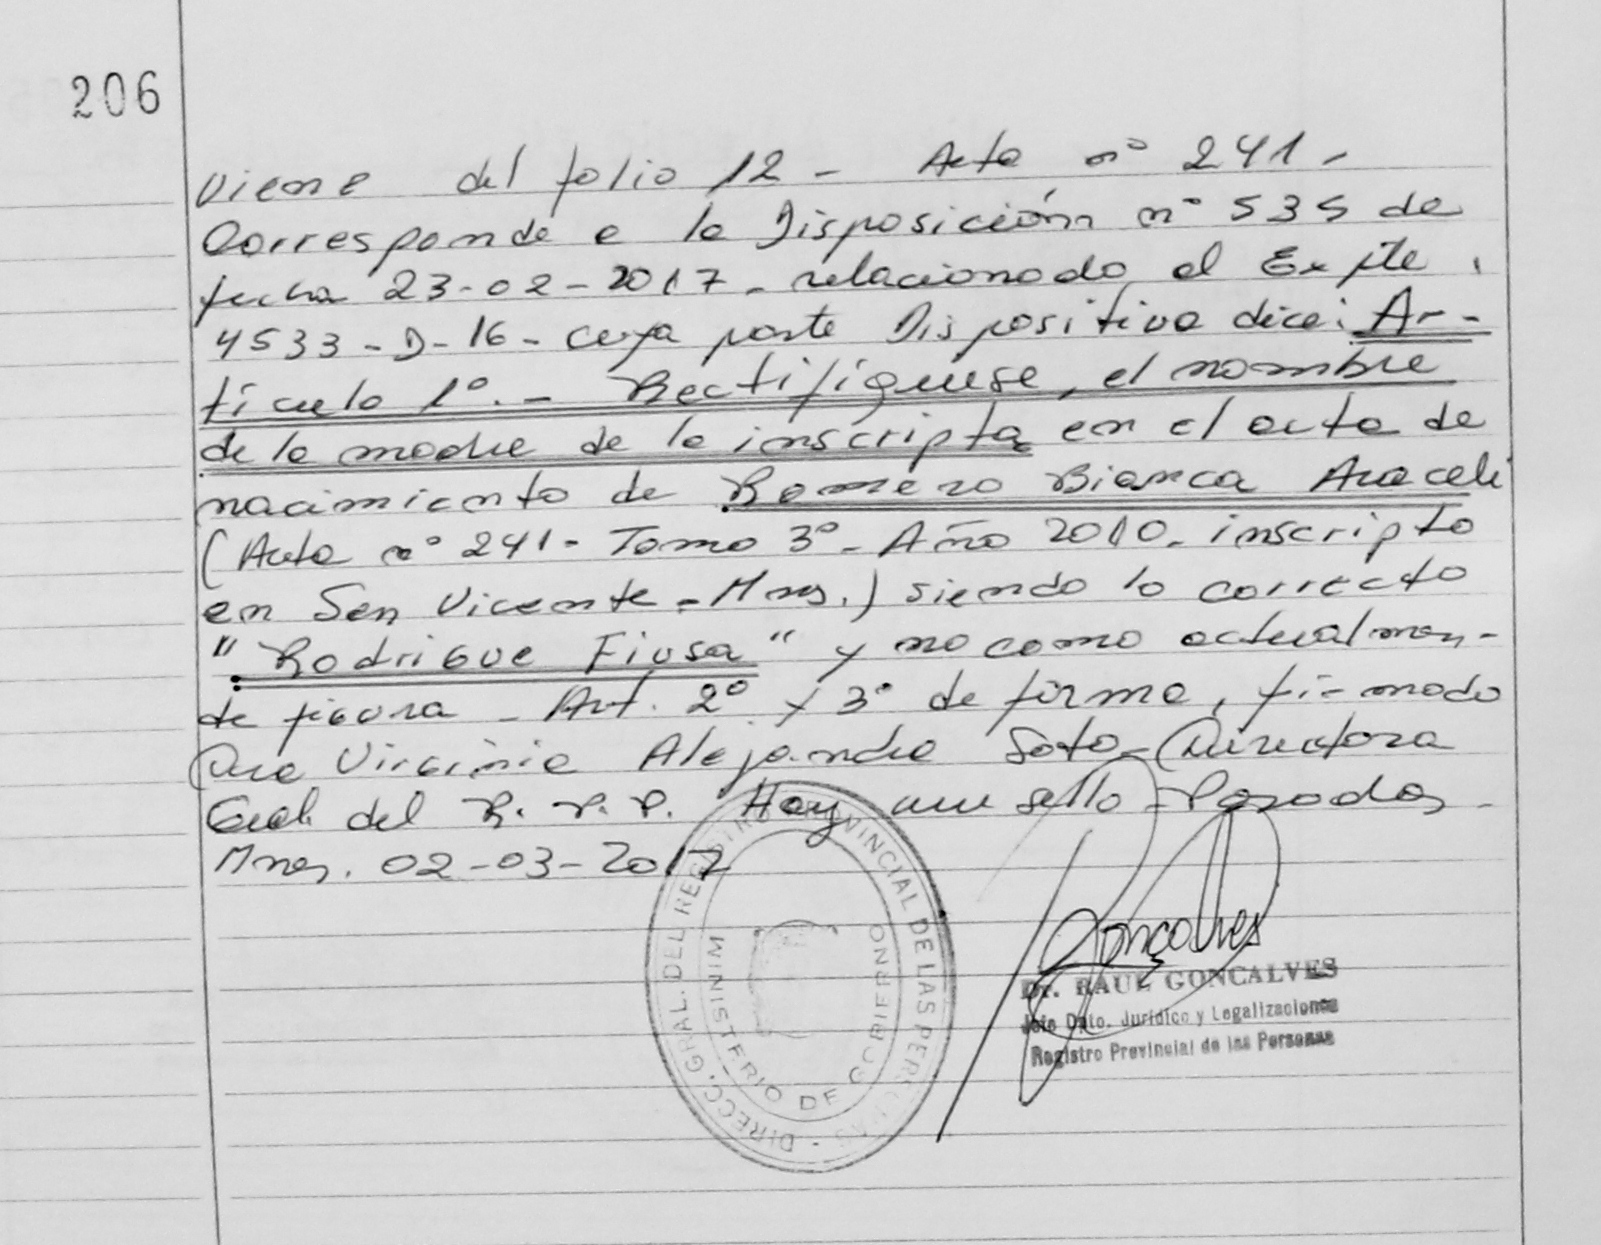 206
Viene del folio 12 - Acta nº 241 -
Corresponde a la Disposición nº 535 de
fecha 23-02-2017 - relacionado al Expte.
4533-D-16 - cuya parte Dispositiva dice: Ar-
tículo 1º. - Rectifíquese, el nombre
de la madre de la inscripta en el acta de
nacimiento de Romero Bianca Araceli
(Acta nº 241 - Tomo 3º - Año 2010 - inscripto
en San Vicente - Mnes.) siendo lo correcto
"Rodrigue Fiusa" y no como actualmen-
te figura - Art. 2º y 3º de forma, firmado
Dra Virginia Alejandra Soto - Directora
Gral. del R. P. P. Hay un sello - Posadas -
Mnes. 02-03-2017
DIRECC. GRAL. DEL REGISTRO PROVINCIAL DE LAS PERSONAS
MINISTERIO DE GOBIERNO
Gonçalves
Dr. RAUL GONCALVES
Jefe Dpto. Jurídico y Legalizaciones
Registro Provincial de las Personas